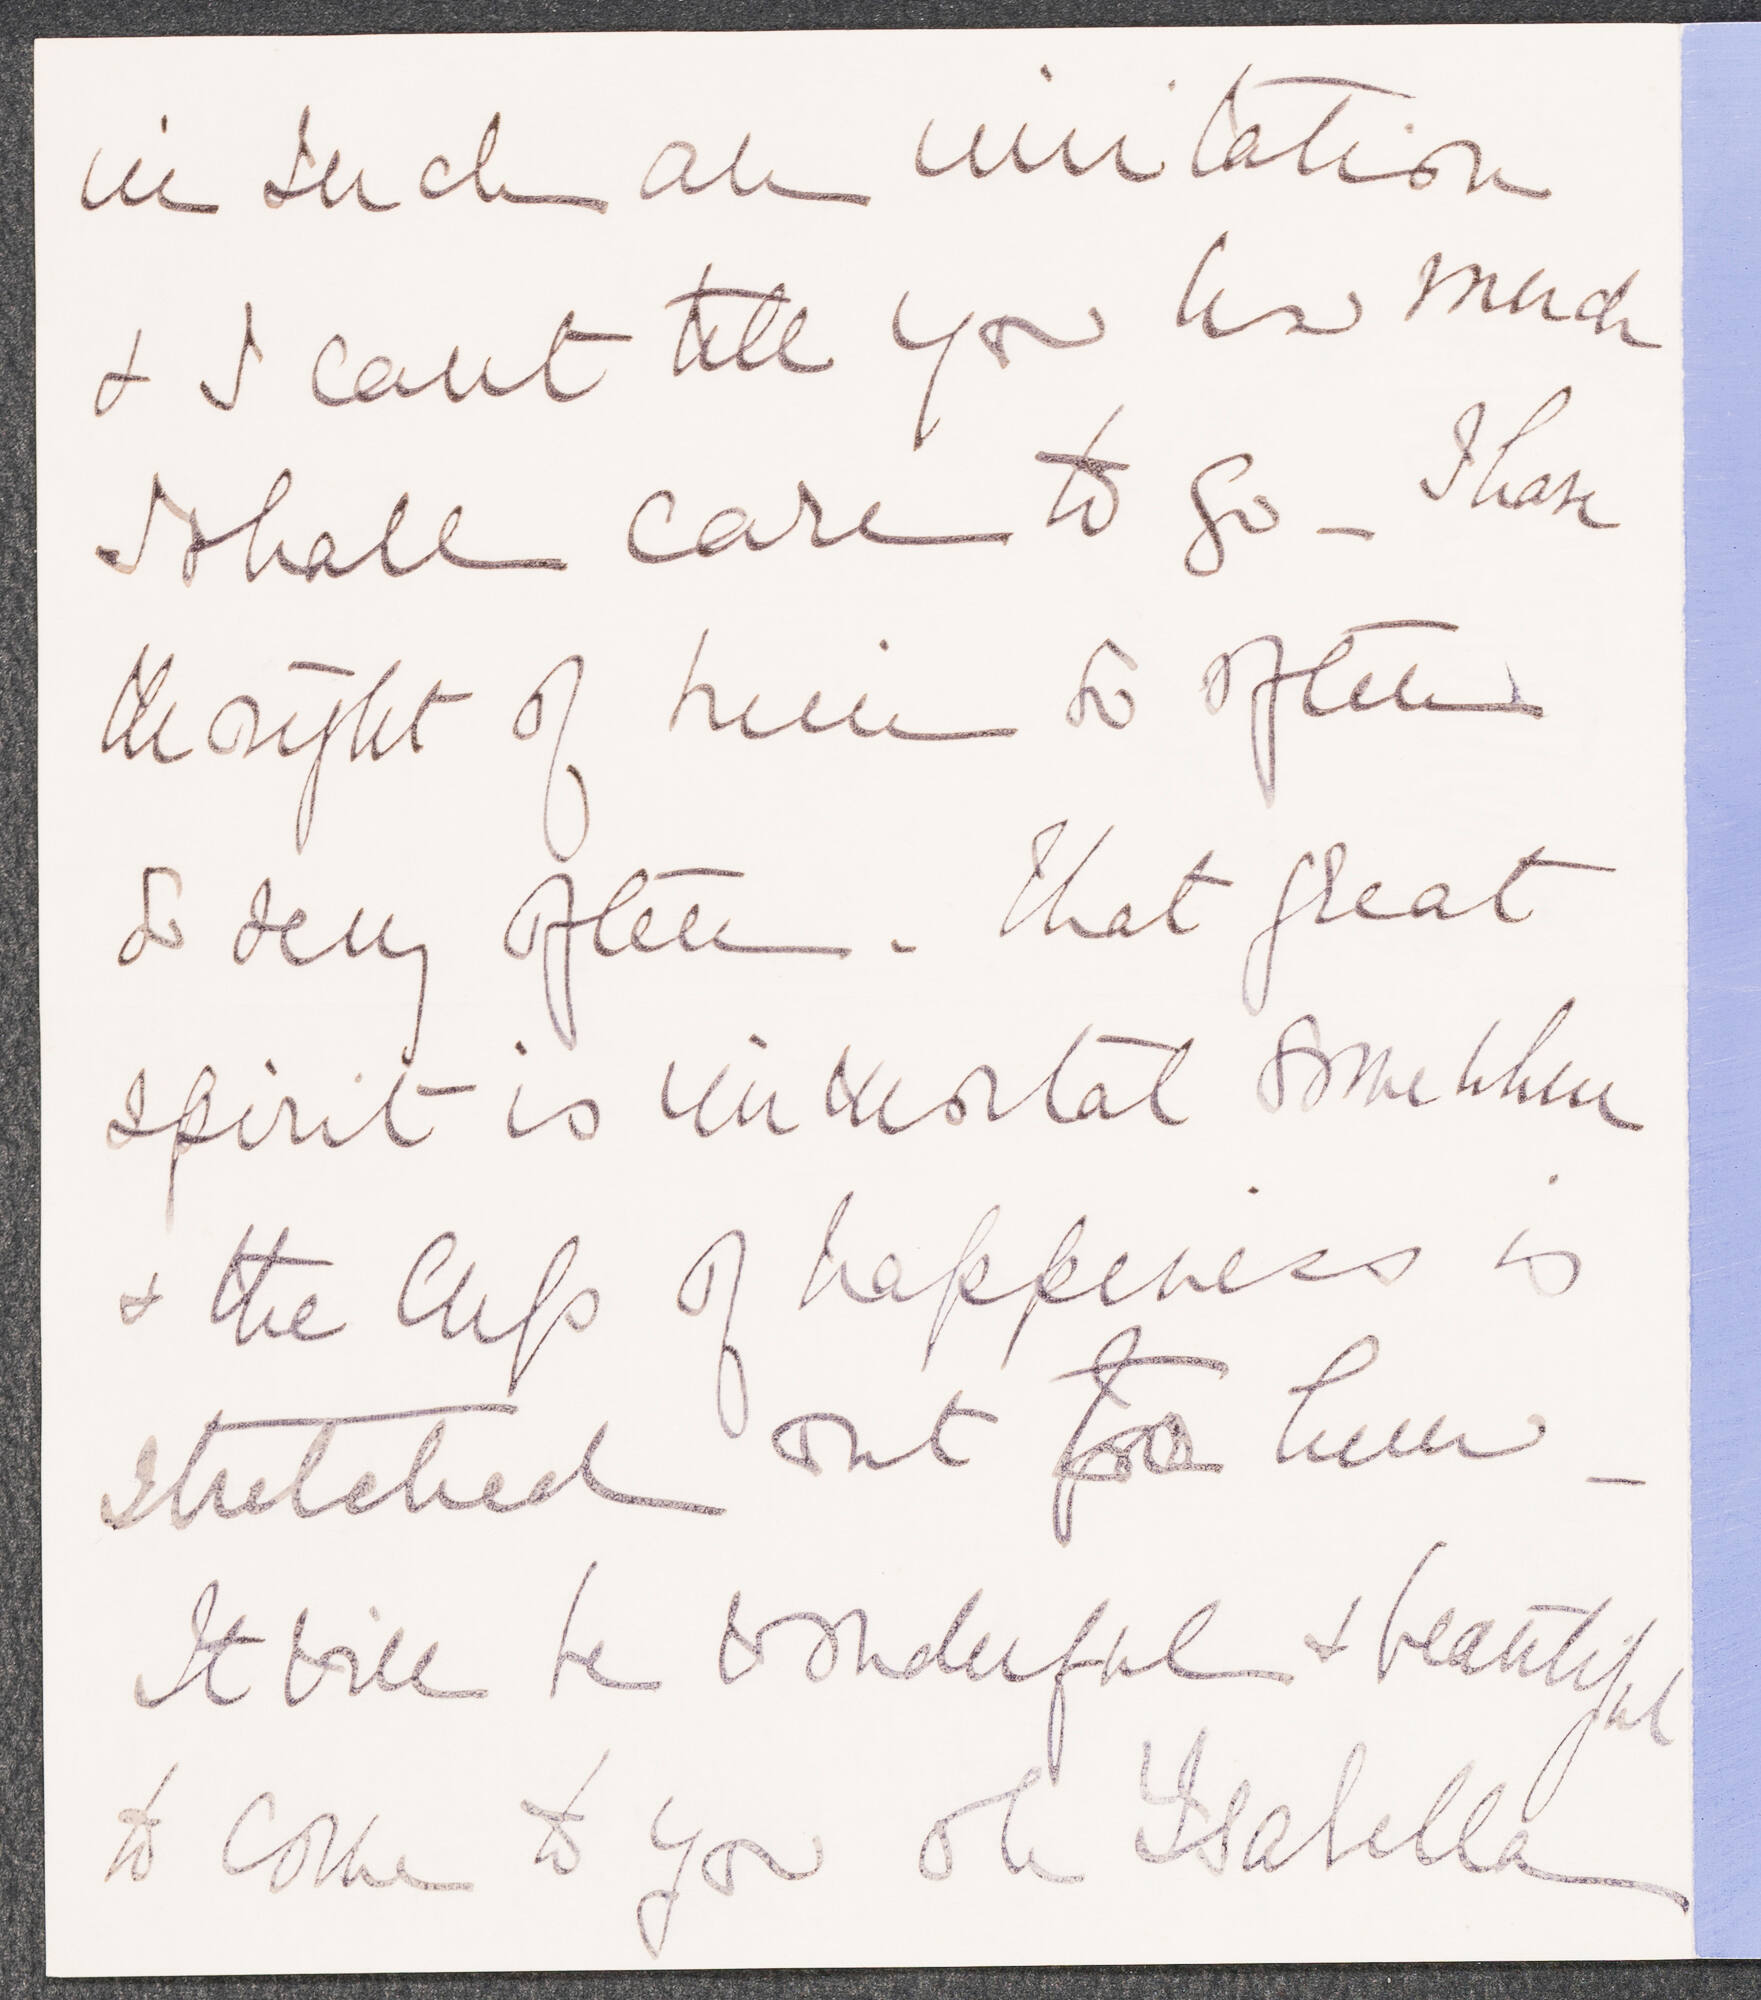 in such an invitation
& I cant tell you how much
I shall care to go – I have
thought of him so often
so very often. That great
spirit is immortal somewhere
& the Cup of happiness is
stretched out for him –
It will be wonderful & beautiful
to come to you oh Ysabella